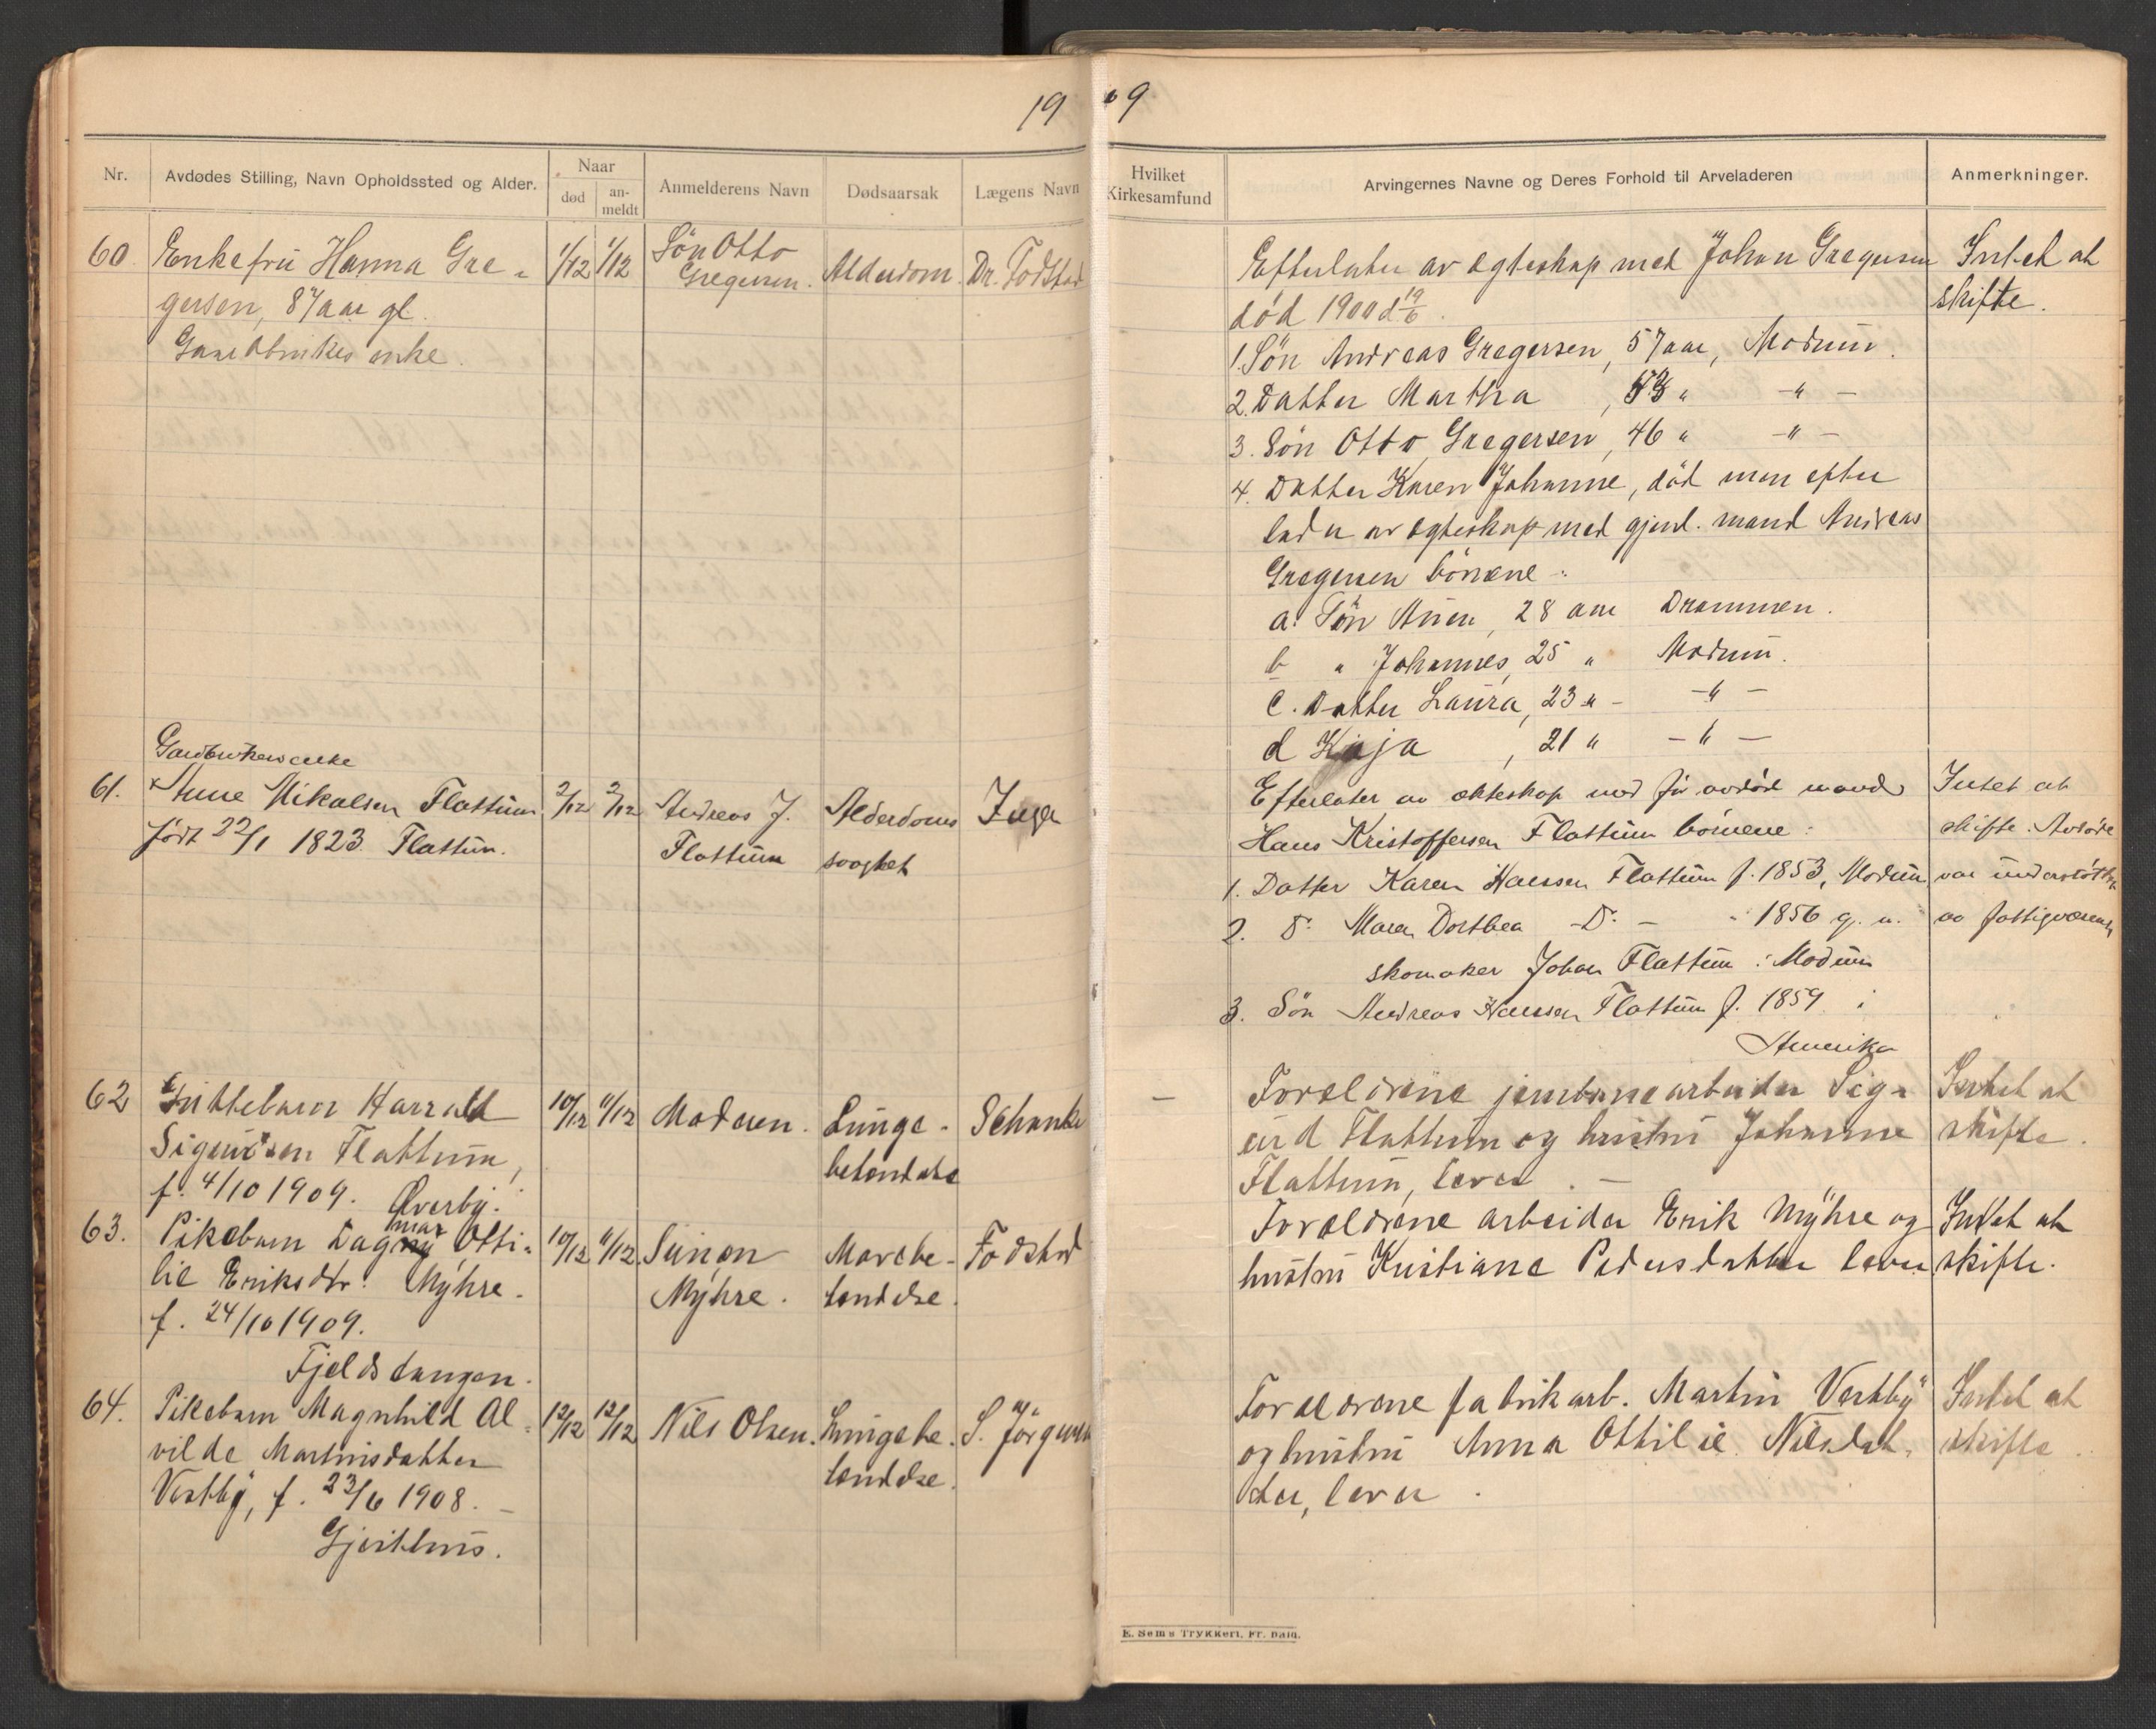 19 09
Nr.
Avdødes Stilling, Navn Opholdssted og Alder.
Naar
død
an-
meldt
Anmelderens Navn
Dødsaarsak
Lægens Navn
Hvilket
Kirkesamfund
Arvingernes Navne og Deres Forhold til Arveladeren
Anmerkninger.
60 Enkefru Hanna Gre-
gersen, 87 aar gl.
Gaardbrukes enke.
1/12 1/12
Søn Otto
Gregersen.
Alderdom.
Dr. Fodstad
Efterlater av egteskap med Johan Gregersen
død 1900 d 19/6.
1. Søn Andreas Gregersen, 57 aar, Modum.
2. Datter Martha, " - " -
3. Søn Otto Gregersen, 46 " - " -
4. Datter Karen Johanne, død men efter
lader av egteskap med gjenl. mand Andreas
Gregersen børnene:
a. Søn 28 aar Drammen.
b " Johannes, 25 " Modum.
c. Datter Laura, 23 " - " -
d Kaja, 21 " - " -
Intet at
skifte.
61.
Gaardbrukerenke
Anne Nikolsen Flattum
født 22/1 1823. Flattum.
2/12 2/12
Andreas J.
Flattum
Alderdoms
svaghet
Inger
Efterlater av ekteskap med før avdød mand
Hans Kristoffersen Flattum børnene:
1. Datter Karen Hanssen Flattum f. 1853, Modum
2. D. Maren Dorthea - D. - " 1856 g. m.
skomaker Johan Flattum : Modum
3. Søn Andreas Hanssen Flattum f. 1859 i
Amerika
Intet at
skifte. Avdøde
var understøttet
av fattigvæsenet
62 Guttebarn Harrald
Sigurdsen Flattum,
f. 4/10 1909. Øverby.
10/12 11/12
Moderen.
Lunge-
betendelse
Schanke
-
Forældrene jernbanearbeider Sig-
urd Flattum og hustru Johanne
Flattum, lever. -
Intet at
skifte.
63. Pikebarn Dagmar Otti-
lie Eriksdtr. Myhre.
f. 24/10 1909.
Fjeldstangen.
10/12 11/12
Simon
Myhre.
Mavebe-
tendelse.
Fodstad
Forældrene arbeider Erik Myhre og
hustru Kristiane Pedersdatter lever
Intet at
skifte.
64. Pikebarn Magnhild Al-
vilde Martinsdatter
Vestby, f. 23/6 1908. -
Gjeithus.
12/12 12/12
Nils Olsen.
Lungebe-
tendelse.
S. Jørgensen
Forældrene fabrikarb. Martin Vestby
og hustru Anna Ottilie Nilsdat-
ter, lever.
Intet at
skifte.
E. Sems Trykkeri, Fr. hald.